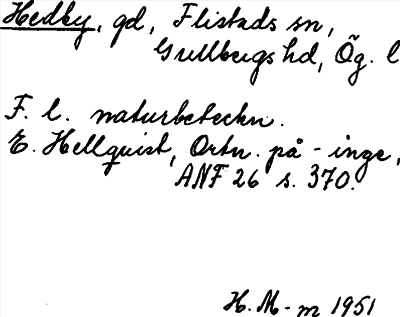 Hedby, gd, Flistads sn,
Gullbergs hd, Ög. l
F. l. naturbeteckn.
E. Hellquist, Ortn. på -inge,
ANF 26 s. 370.
H. M-m 1951